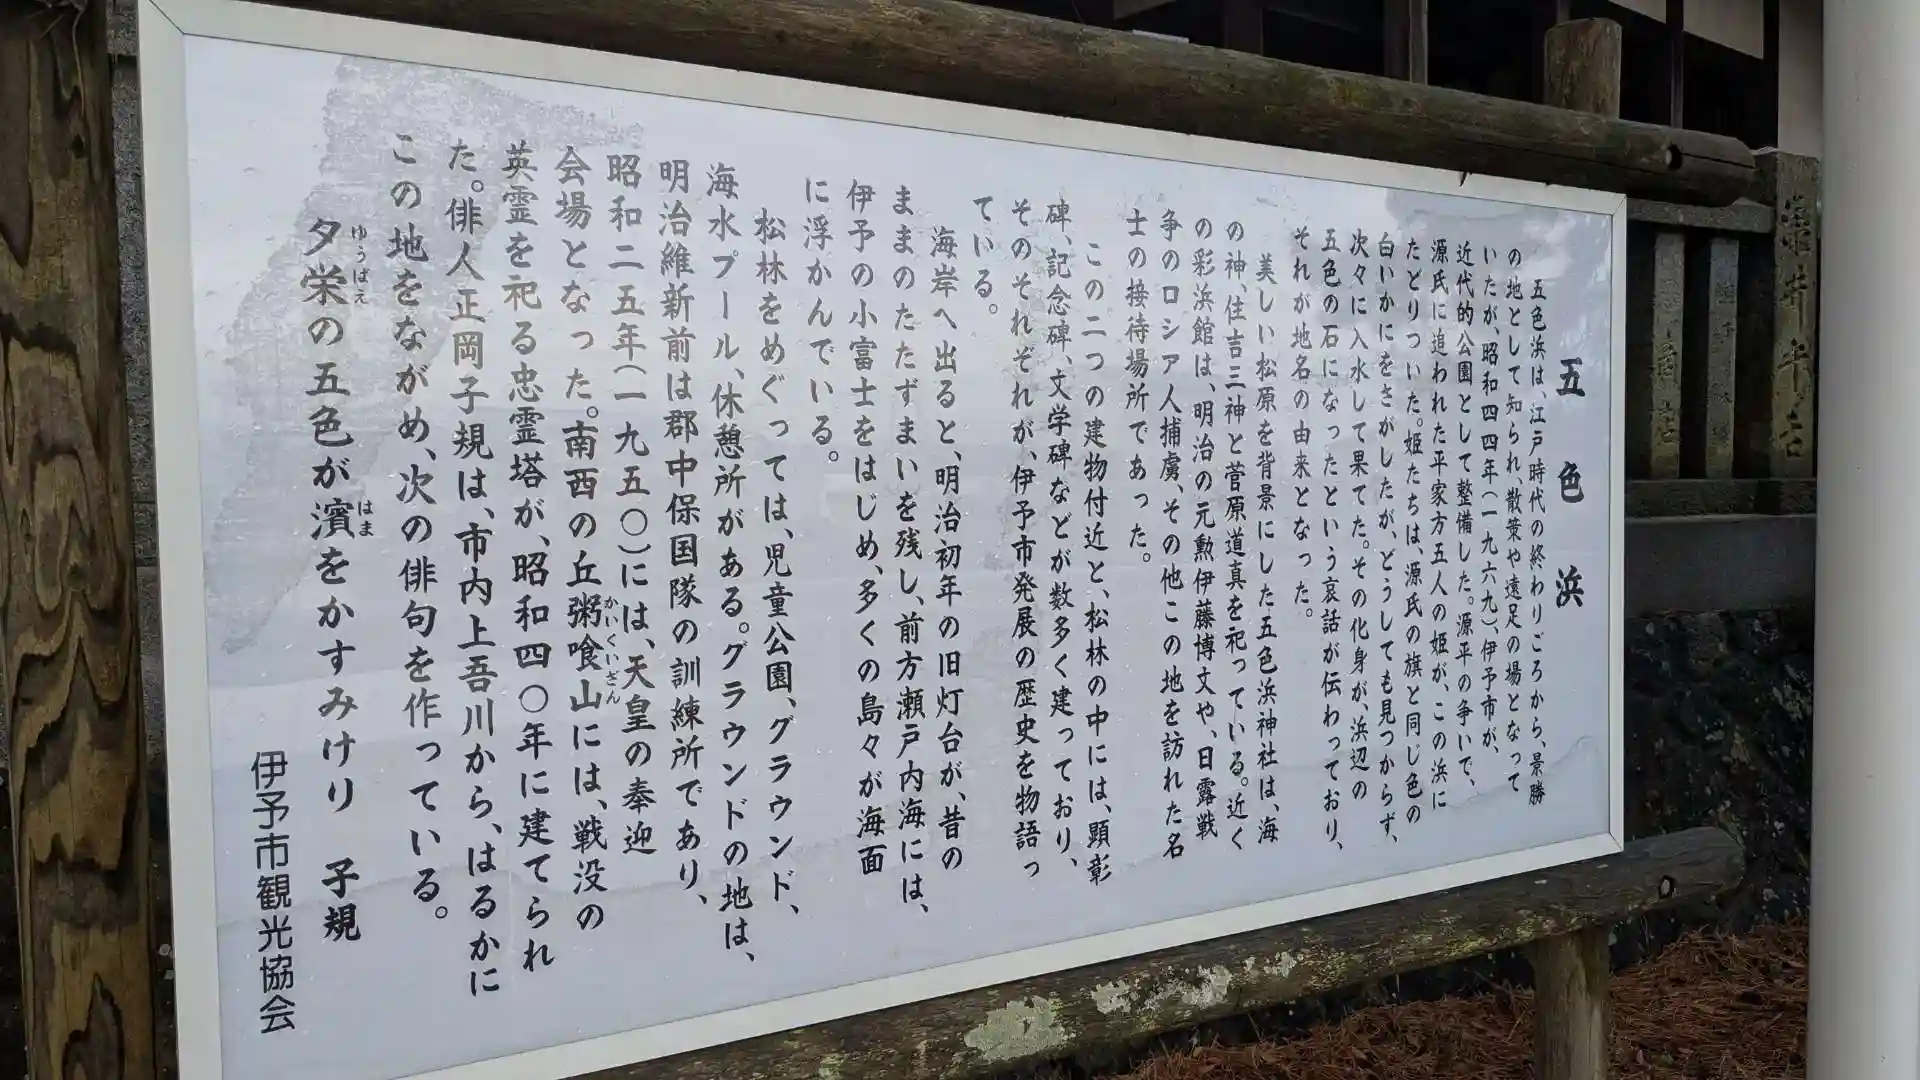 五色浜
五色浜は、江戸時代の終わりごろから、景勝
の地として知られ、散策や遠足の場となって
いたが、昭和四四年(一九六九)、伊予市が、
近代的公園として整備した。源平の争いで、
源氏に追われた平家方五人の姫が、この浜に
たどりついた。姫たちは、源氏の旗と同じ色の
白いかにをさがしたが、どうしても見つからず、
次々に入水して果てた。その化身が、浜辺の
五色の石になったという哀話が伝わっており、
それが地名の由来となった。
美しい松原を背景にした五色浜神社は、海
の神、住吉三神と菅原道真を祀っている。近く
の彩浜館は、明治の元勲伊藤博文や、日露戦
争のロシア人捕虜、その他この地を訪れた名
士の接待場所であった。
この二つの建物付近と、松林の中には、顕彰
碑、記念碑、文学碑などが数多く建っており、
そのそれぞれが、伊予市発展の歴史を物語っ
ている。
海岸へ出ると、明治初年の旧灯台が、昔の
ままのたたずまいを残し、前方瀬戸内海には、
伊予の小富士をはじめ、多くの島々が海面
に浮かんでいる。
松林をめぐっては、児童公園、グラウンド、
海水プール、休憩所がある。グラウンドの地は、
明治維新前は郡中保国隊の訓練所であり、
昭和二五年(一九五〇)には、天皇の奉迎
会場となった。南西の丘粥喰山には、戦没の
かいくいざん
英霊を祀る忠霊塔が、昭和四〇年に建てられ
た。俳人正岡子規は、市内上吾川から、はるかに
この地をながめ、次の俳句を作っている。
夕栄の五色が濱をかすみけり 子規
ゆうばえ はま
伊予市観光協会